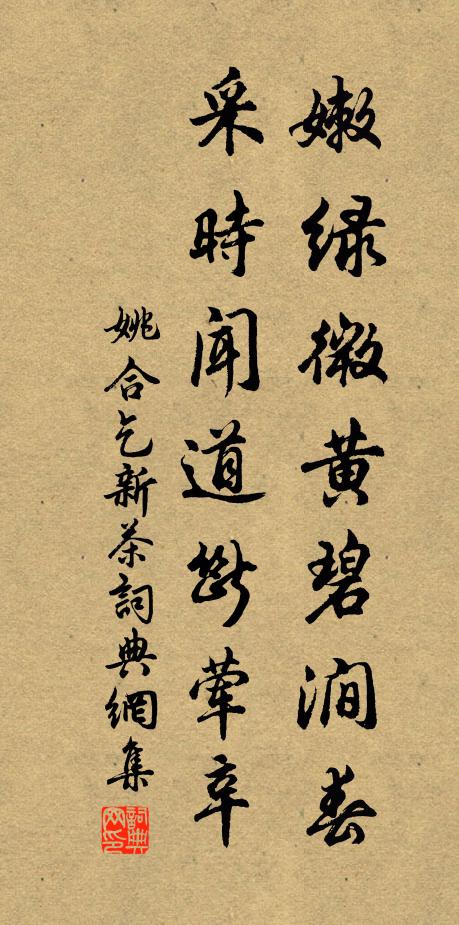 嫩绿微黄碧涧春
采時聞道斷葷辛
姚合乞新茶詞典網集
詞典网印